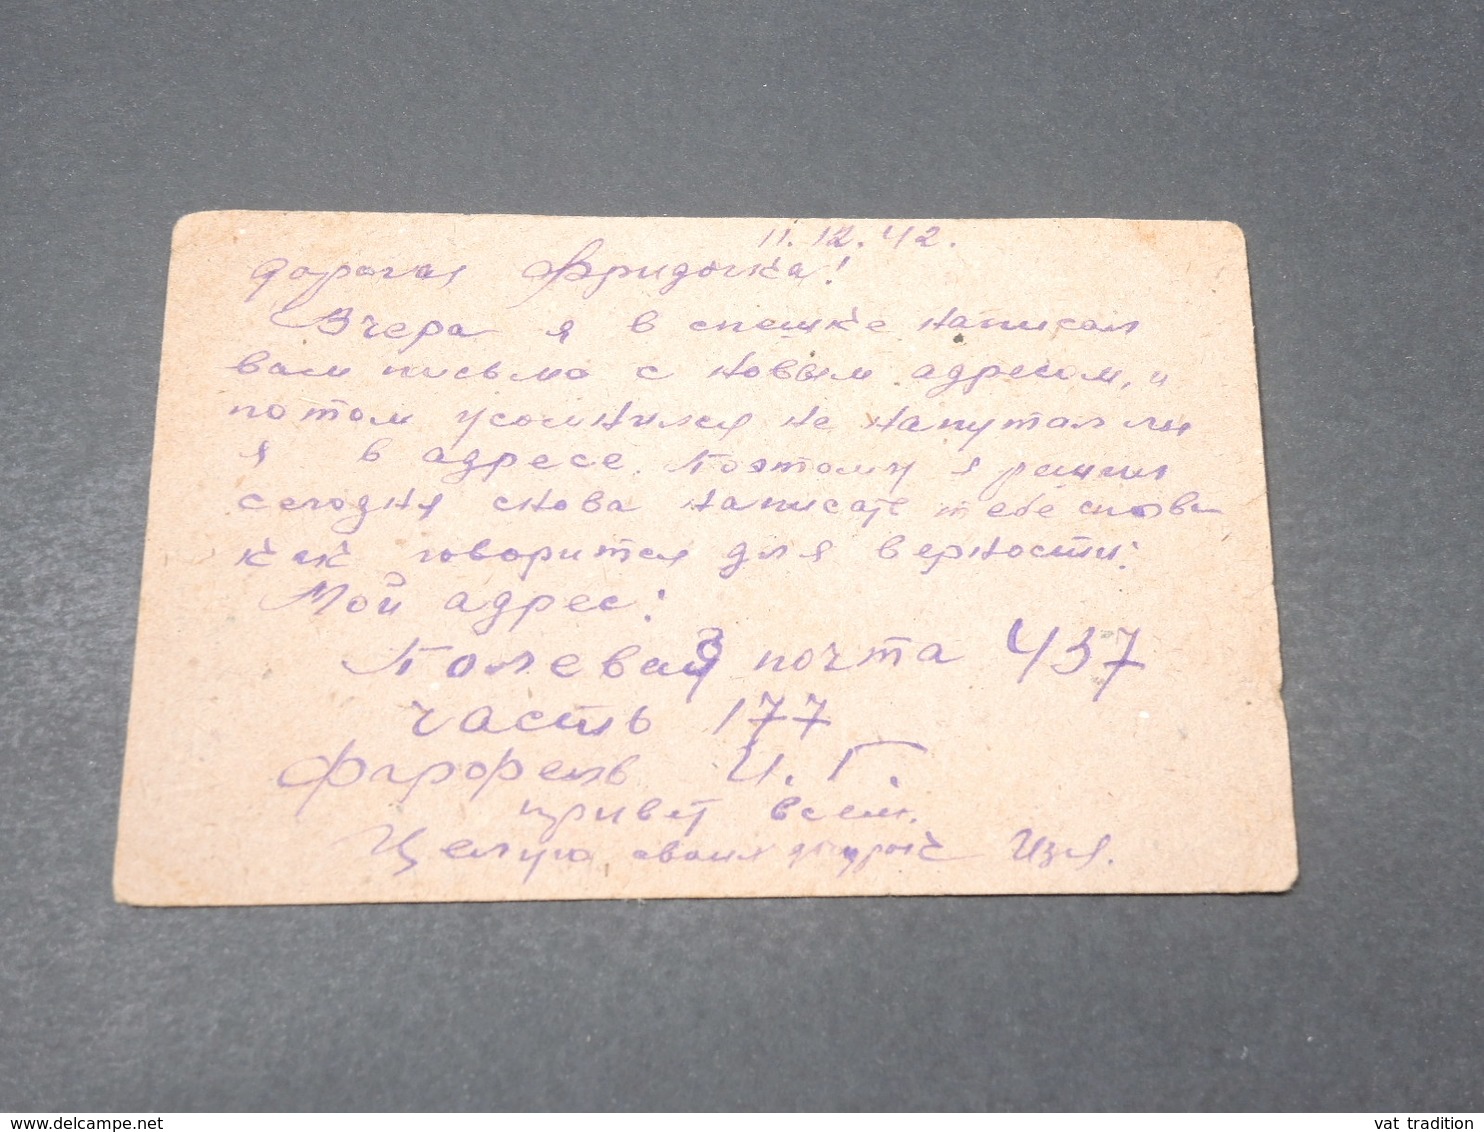 11.12.42.
Дорогая Фридочка!
Вчера я в спешке написал
вам письмо с новым адресом, и
потом усомнился не напутал ли
я в адресе. Поэтому я решил
сегодня снова написать тебе снова
как говорится для верности:
Мой адрес:
Полевая почта 437
часть 177
И. Г.
привет всем.
Целую Изя.
vat tradition
www.delcampe.net